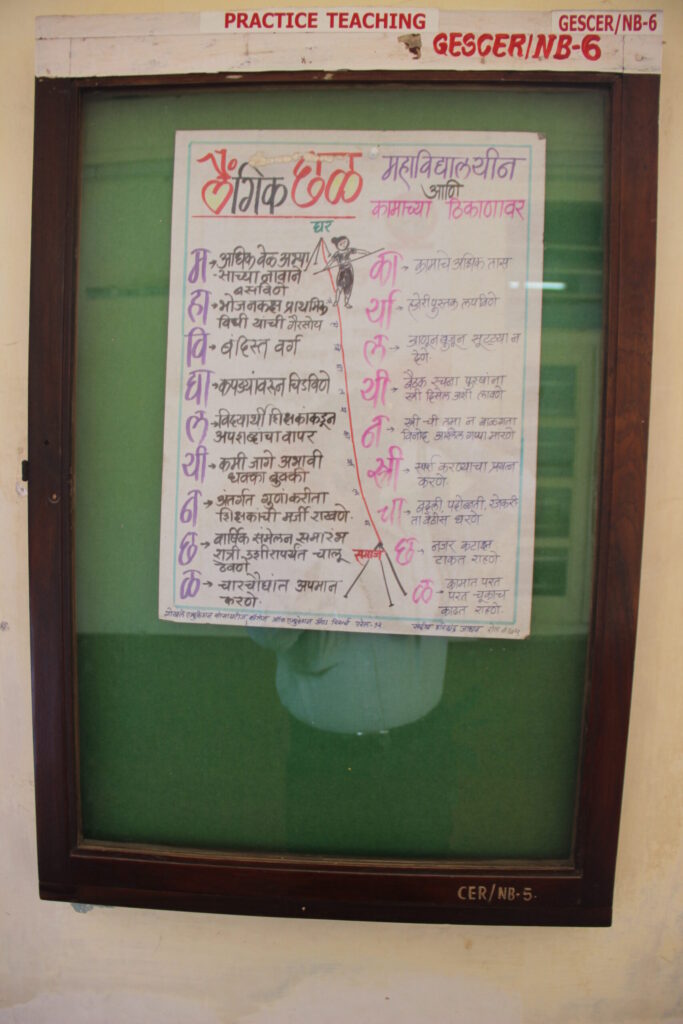 PRACTICE TEACHING
GESCER/NB-6
GESCER/NB-6
लैंगिक छळ
महाविद्यालयीन
आणि
कामाच्या ठिकाणावर
घर
म → अधिक वेळ अभ्या
साच्या नावाने
बसविणे
हा → भोजनकक्ष प्राथमिक
विधी यांची गैरसोय
वि → बंदिस्त वर्ग
द्या → कपड्यांवरून चिडविणे
ल → विद्यार्थी शिक्षकांकडून
अपशब्दाचा वापर
यी → कमी जागे अभावी
धक्का बुक्की
न → अंतर्गत गुणाकरीता
शिक्षकांची मर्जी राखणे.
छ → वार्षिक संमेलन समारंभ
रात्री उशीरापर्यंत चालू
ठेवणे
ळ → चारचौघांत अपमान
करणे.
का → कामाचे अधिक तास
र्या → हजेरीपुस्तक लपविणे
ल → जाणून बुजून सुट्ट्या न
देणे
यी → बैठक रचना पुरुषांना
स्त्री दिसेल अशी लावणे
न → स्त्री ची तमा न बाळगता
विनोद, अश्लिल गप्पा मारणे
स्त्री → स्पर्श करण्याचा प्रयत्न
करणे.
चा → बदली, पदोन्नती, रजेकरी
ता वेठीस धरणे
छ → नजर कटाक्ष
टाकत राहणे
ळ → कामात परत
परत चूकाच
काढत राहणे
समाज
CER/NB-5.